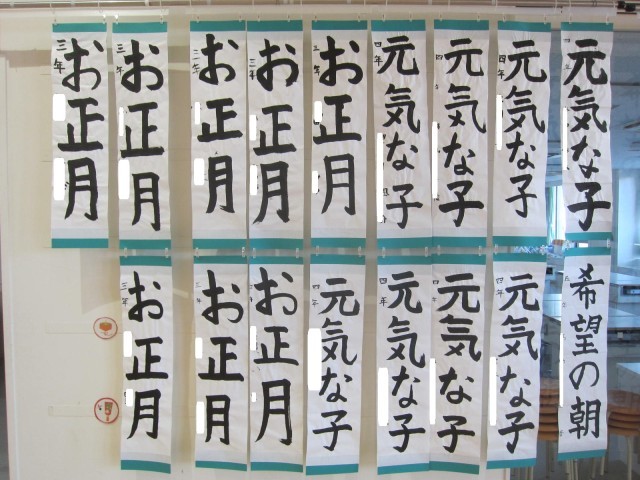 三年 お正月
三年 お正月
三年 お正月
三年 お正月
お正月
四年 元気な子
四 元気な子
四年 元気な子
元気な子
三年 お正月
お正月
お正月
四年 元気な子
四年 元気な子
元気な子
四年 元気な子
希望の朝